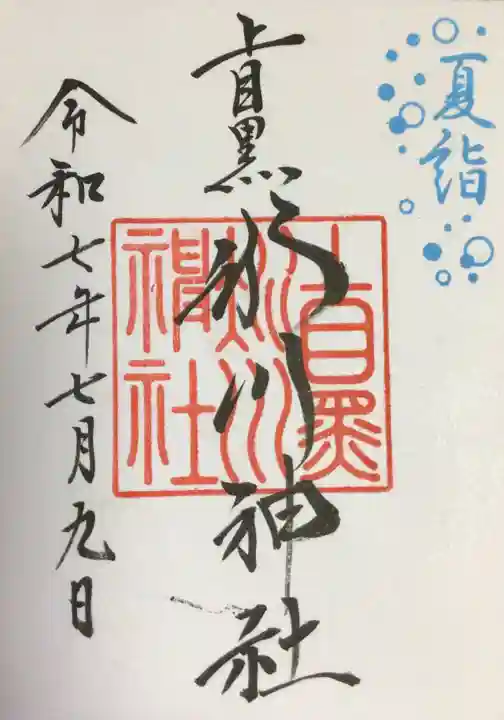 夏詣
上目黒氷川神社
上目黒
氷川
神社
令和七年七月九日